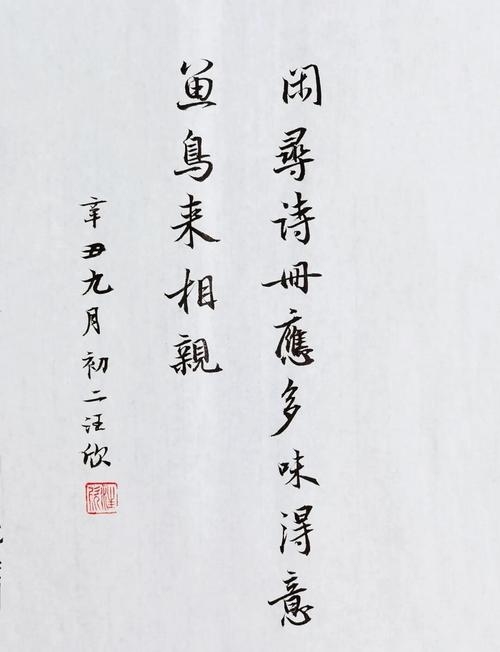 閑尋詩册應多味得意
魚鳥来相親
辛丑九月初二汪欣